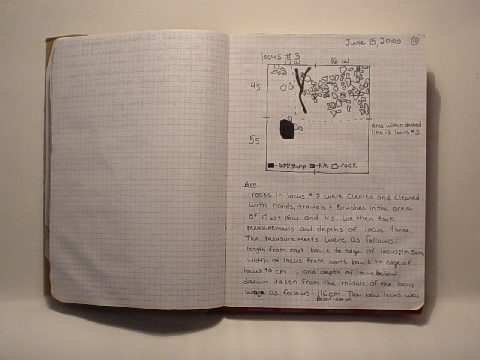 June 15, 2000
locus # 3
17 w 16 w
4S
area within dashed
line is locus # 3
5S
- rock
Am
rocks in locus # 3 were cleaned
with hands, trowels + Brushes in the area
of 17 w + 16 w and 4s. We then took
measurements and depths of locus three.
The measurements were as follows:
length from east baulk to edge of locus
width of locus from north baulk to edge of
locus 90 cm, and depth of locus below
datum taken from the middle of the locus
was as follows: 116 cm. The new locus was
below datum